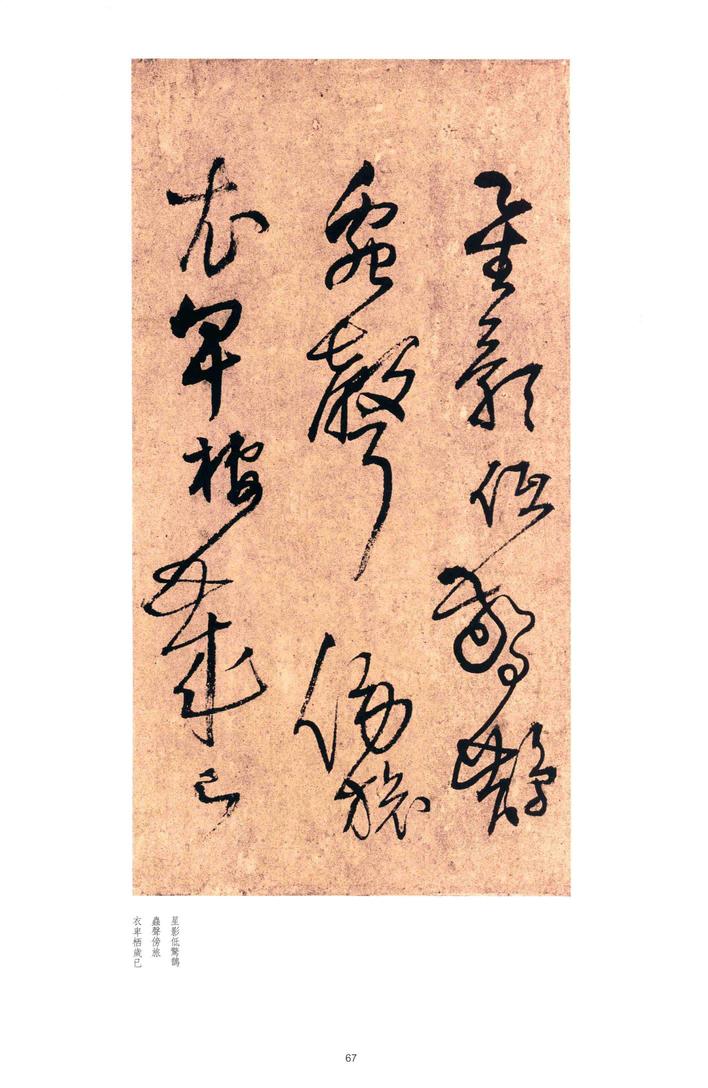 星影低驚鵲
蟲聲傍旅
衣卑栖歲已
星影低驚鵲
蟲聲傍旅
衣卑栖歲已
67